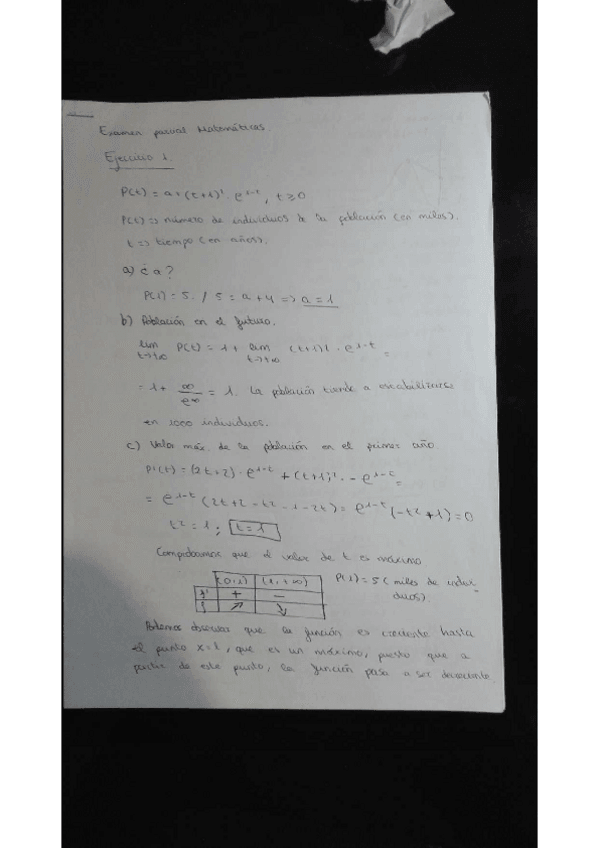 Examen parcial Matemáticas.
Ejercicio 1.
P(t) = a + (t+1)² · e^(1-t), t ≥ 0
P(t) => número de individuos de la población (en miles).
t => tiempo (en años).
a) ¿a?
P(1) = 5. / 5 = a + 4 => a = 1
b) Población en el futuro.
lim t→+∞ P(t) = 1 + lim t→+∞ (t+1)² · e^(1-t) =
= 1 + ∞/e^∞ = 1. La población tiende a estabilizarse
en 1000 individuos.
c) Valor máx. de la población en el primer año.
P'(t) = (2t+2) · e^(1-t) + (t+1)² · -e^(1-t) =
= e^(1-t) (2t+2 -t² -1 -2t) = e^(1-t) (-t²+1) = 0
t² = 1; t = 1
Comprobamos que el valor de t es máximo
(0,1) (1,+∞) P(1) = 5 (miles de indivi-
f' + - duos).
f ↗ ↘
Podemos observar que la función es creciente hasta
el punto x=1, que es un máximo, puesto que a
partir de este punto, la función pasa a ser decreciente.